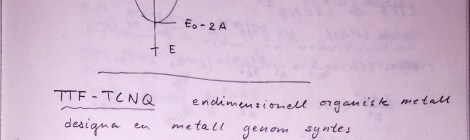 E₀-2A
E
TTF-TCNQ endimensionell organisk metall
designa en metall genom syntes